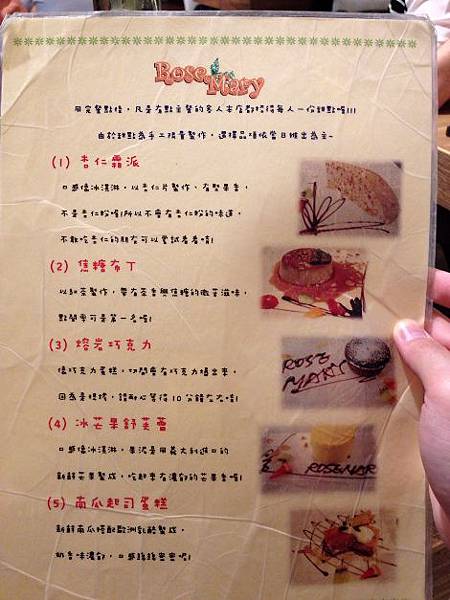 Rose Mary
用完餐點後，凡是有點主餐的客人本店都招待每人一份甜點喔!!!
由於甜點為手工精書製作，選擇品項依當日推出為主~
(1) 杏仁霜派
口感像冰淇淋，以杏仁片製作，有堅果香，
不是杏仁粉喔!所以不會有杏仁粉的味道，
不敢吃杏仁的朋友可以嘗試看看唷!
(2) 焦糖布丁
以紅茶製作，帶有茶香與焦糖的微苦滋味，
點閱率可是第一名喔!
(3) 熔岩巧克力
像巧克力蛋糕，切開會有巧克力
因為是現烤，請耐心等待 10 分鐘左右唷!
(4) 冰芒果舒芙蕾
口感像冰淇淋，果泥是用義大利進口的
新鮮芒果製成，吃起來有濃郁的芒果香喔!
(5) 南瓜起司蛋糕
新鮮南瓜搭配歐洲乳酪製成，
奶香味濃郁，口感綿綿密密喔!
ROSE
MARY
ROSEMAR